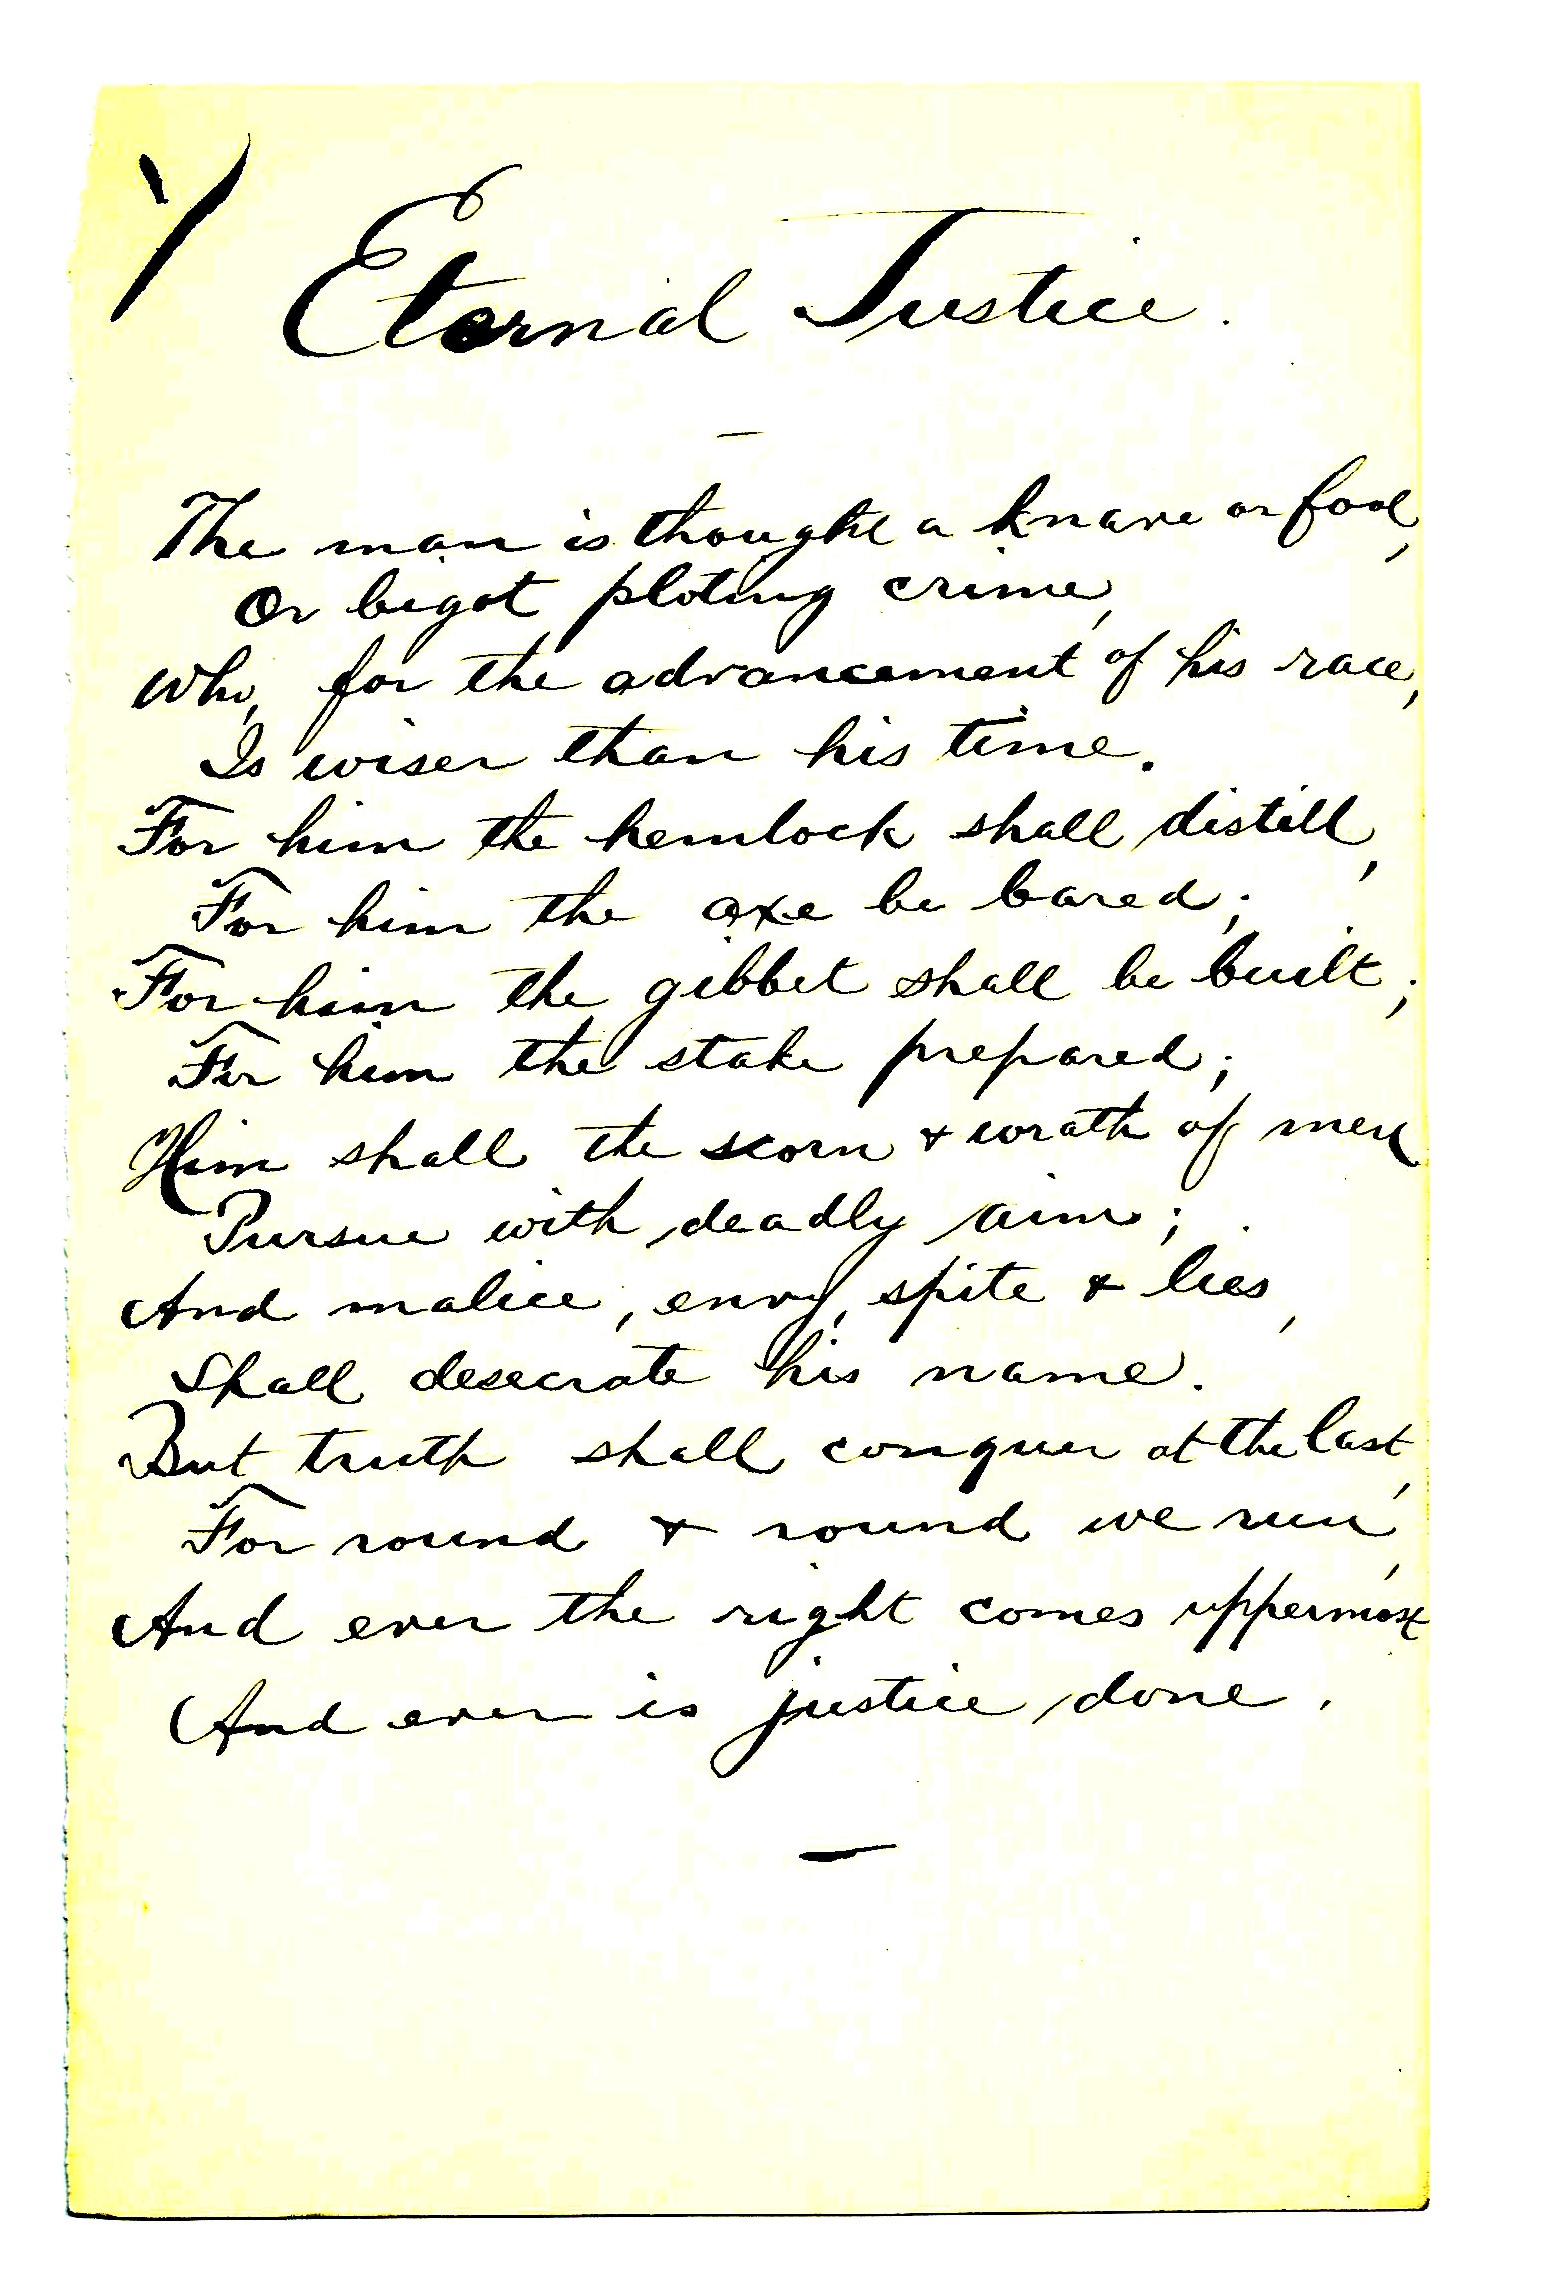 Eternal Justice.
The man is thought a knave or fool,
Or bigot ploting crime,
Who, for the advancement of his race,
Is wiser than his time.
For him the hemlock shall distill,
For him the axe be bared;
For him the gibbet shall be built;
For him the stake prepared;
Him shall the scorn & wrath of men
Pursue with deadly aim;
And malice, envy, spite & lies,
Shall desecrate his name.
But truth shall conquer at the last,
For round & round we run,
And ever the right comes uppermost
And ever is justice done.